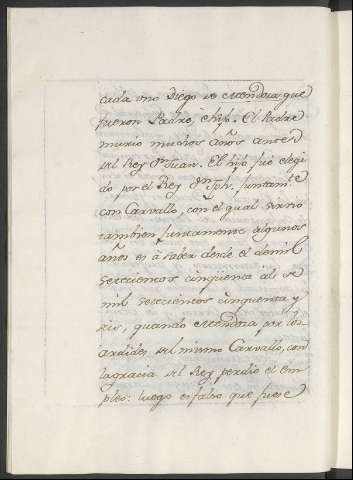 cada uno Diego de Mendoza que
fueron Padre, e hijo. El Padre
murio muchos años antes
del Rey Dn. Juan. El hijo fue elegi
do por el Rey Dn. Jph. juntamte.
con Carvallo, con el qual sirvio
tambien juntamente algunos
años es à saber desde el de mil
setecientos cinquenta al de
mil setecientos cinquenta y
seis, quando Mendoza por los
ardides del mismo Carvallo, con
la gracia del Rey perdio el em
pleo: luego es falso que fuese